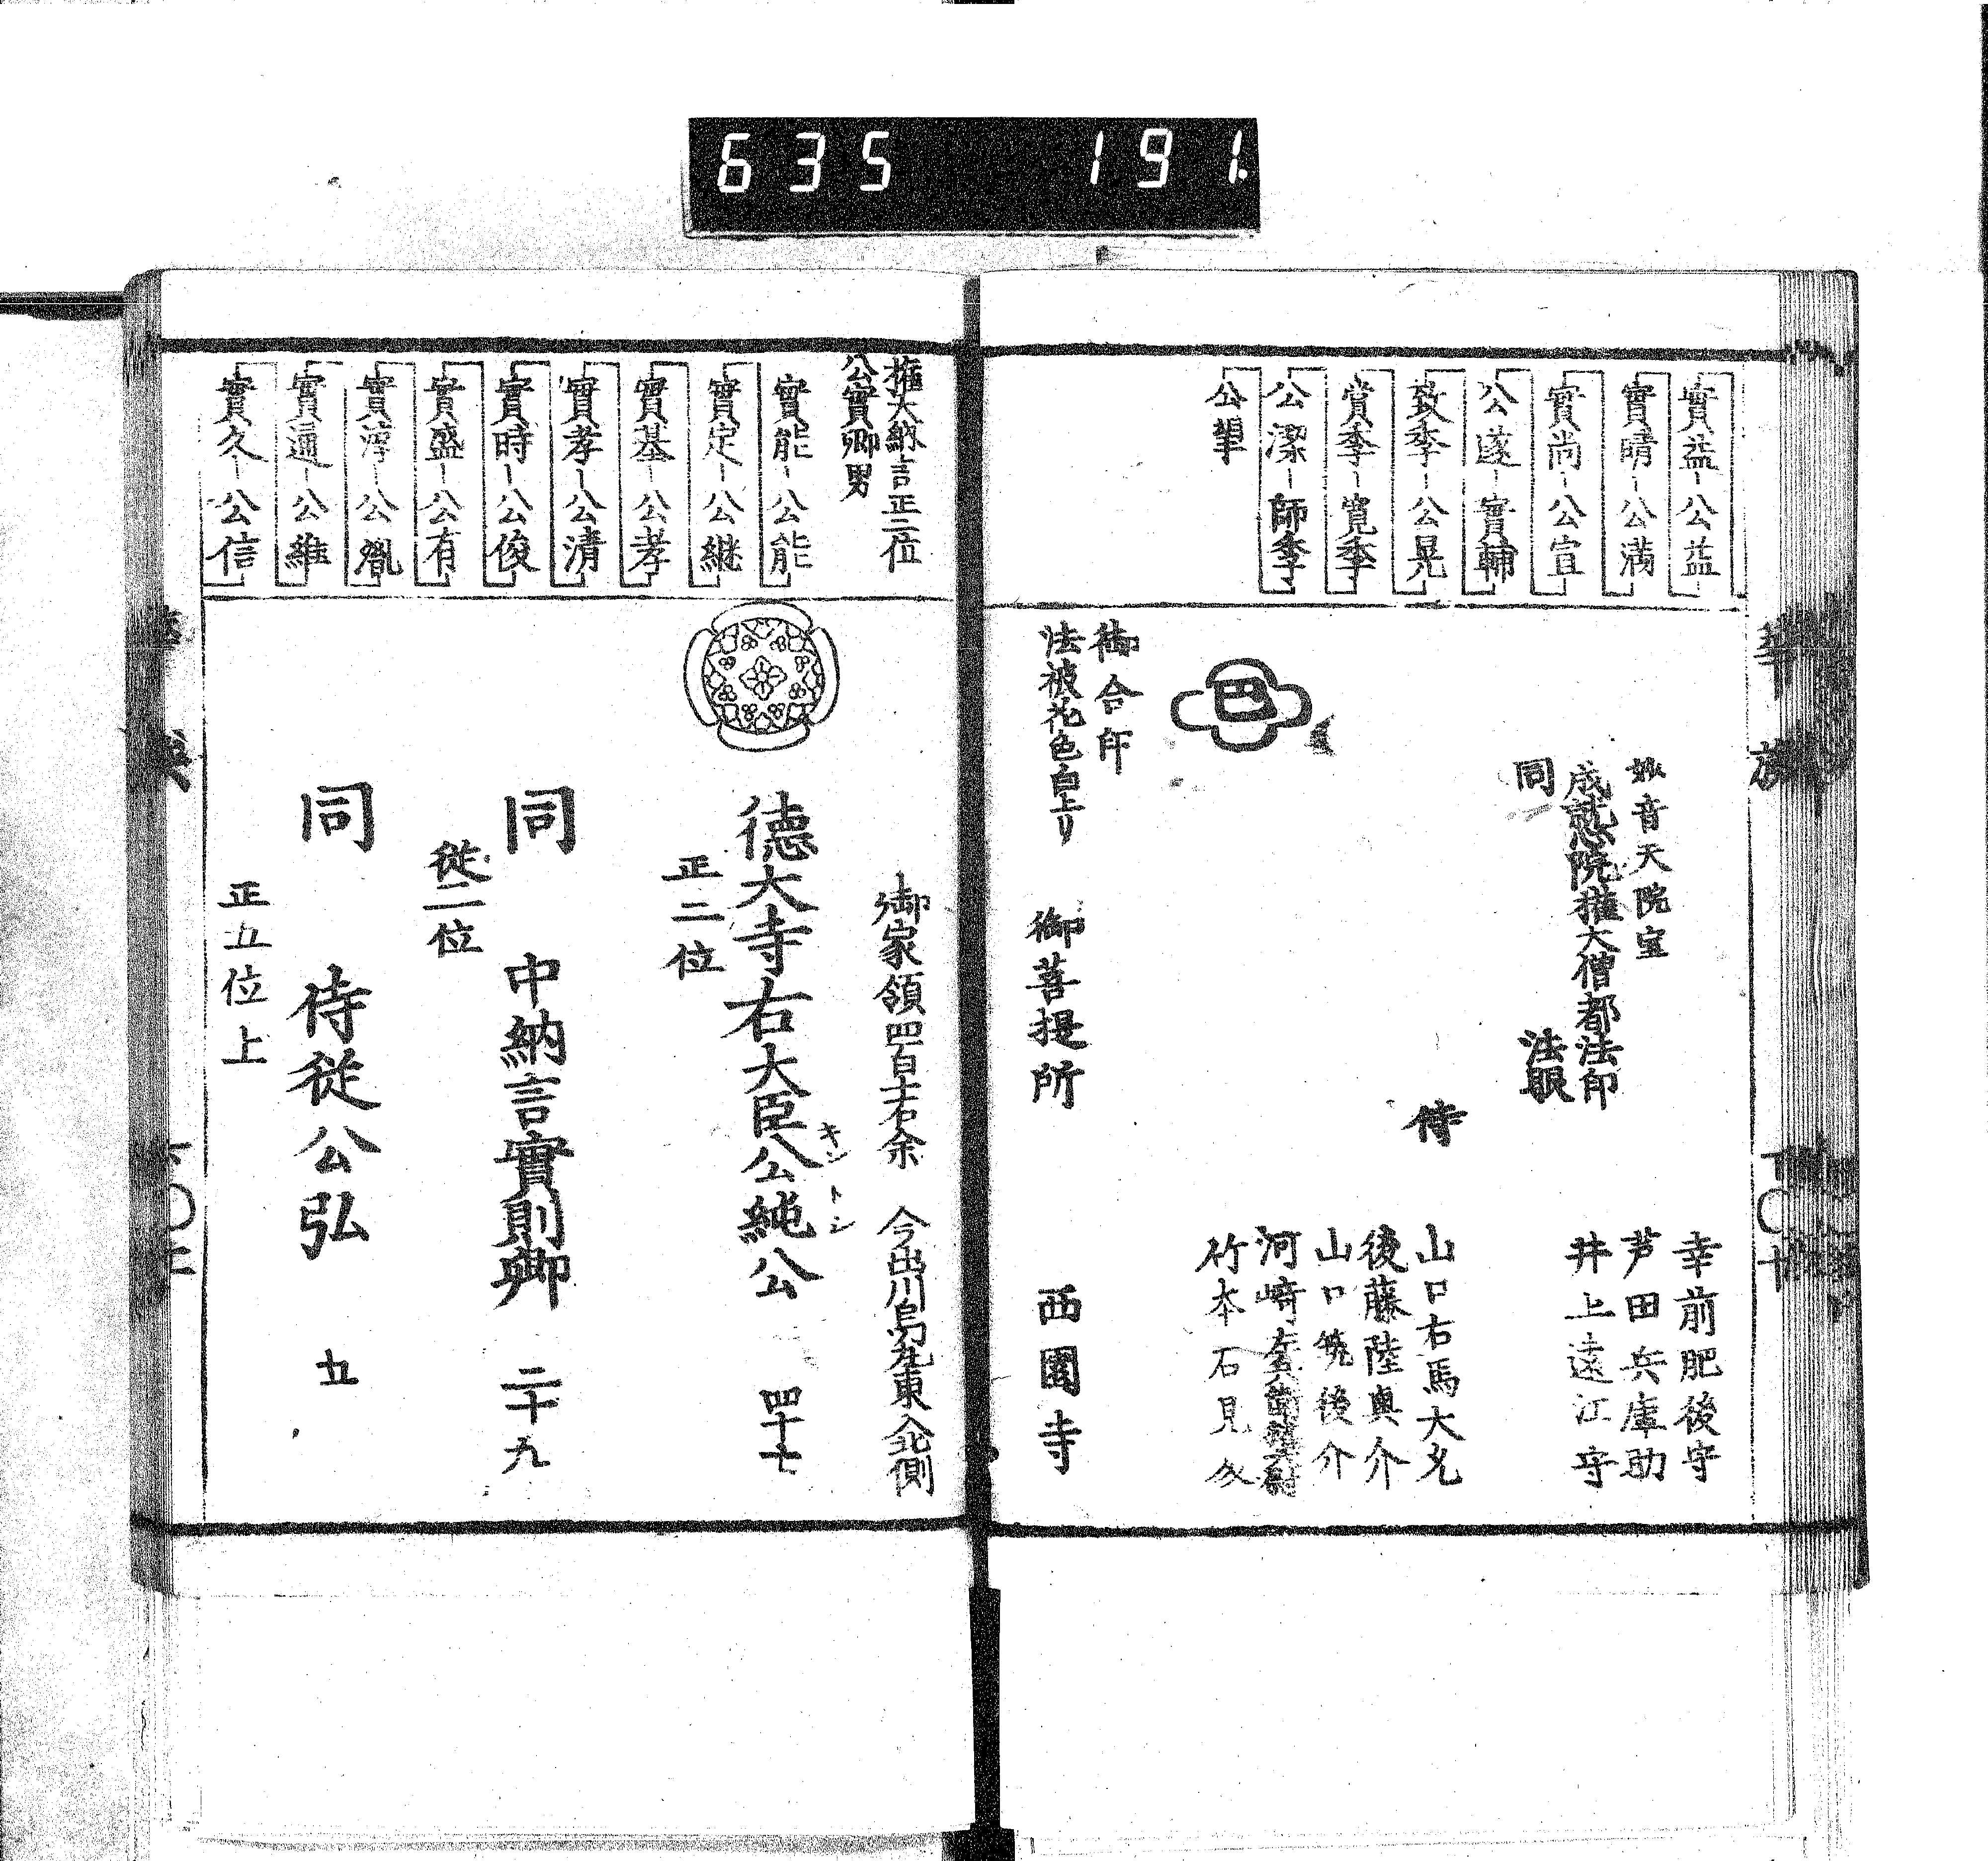 635 191.
實益－公益
實晴－公満
實尚－公宣
公遂－實輔
致季－公晃
賞季－寛季
公潔－師季
公望
妙音天院室
成就心院権大僧都法印
同 法眼
幸前肥後守
芦田兵庫助
井上遠江守
侍
山口右馬大允
後藤陸奥介
山口筑後介
河崎
竹本石見
巴
御合印
法被花色白上リ
御菩提所 西園寺
華族
権大納言正二位
公實卿男
實能－公能
實定－公継
實基－公孝
實孝－公清
實時－公俊
實盛－公有
實淳－公胤
實通－公維
實久－公信
御家領四百十石余 今出川烏丸東入北側
德大寺右大臣公純公 四十七
キントシ
正二位
同 中納言實則卿 二十九
従二位
同 侍従公弘 五
正五位上